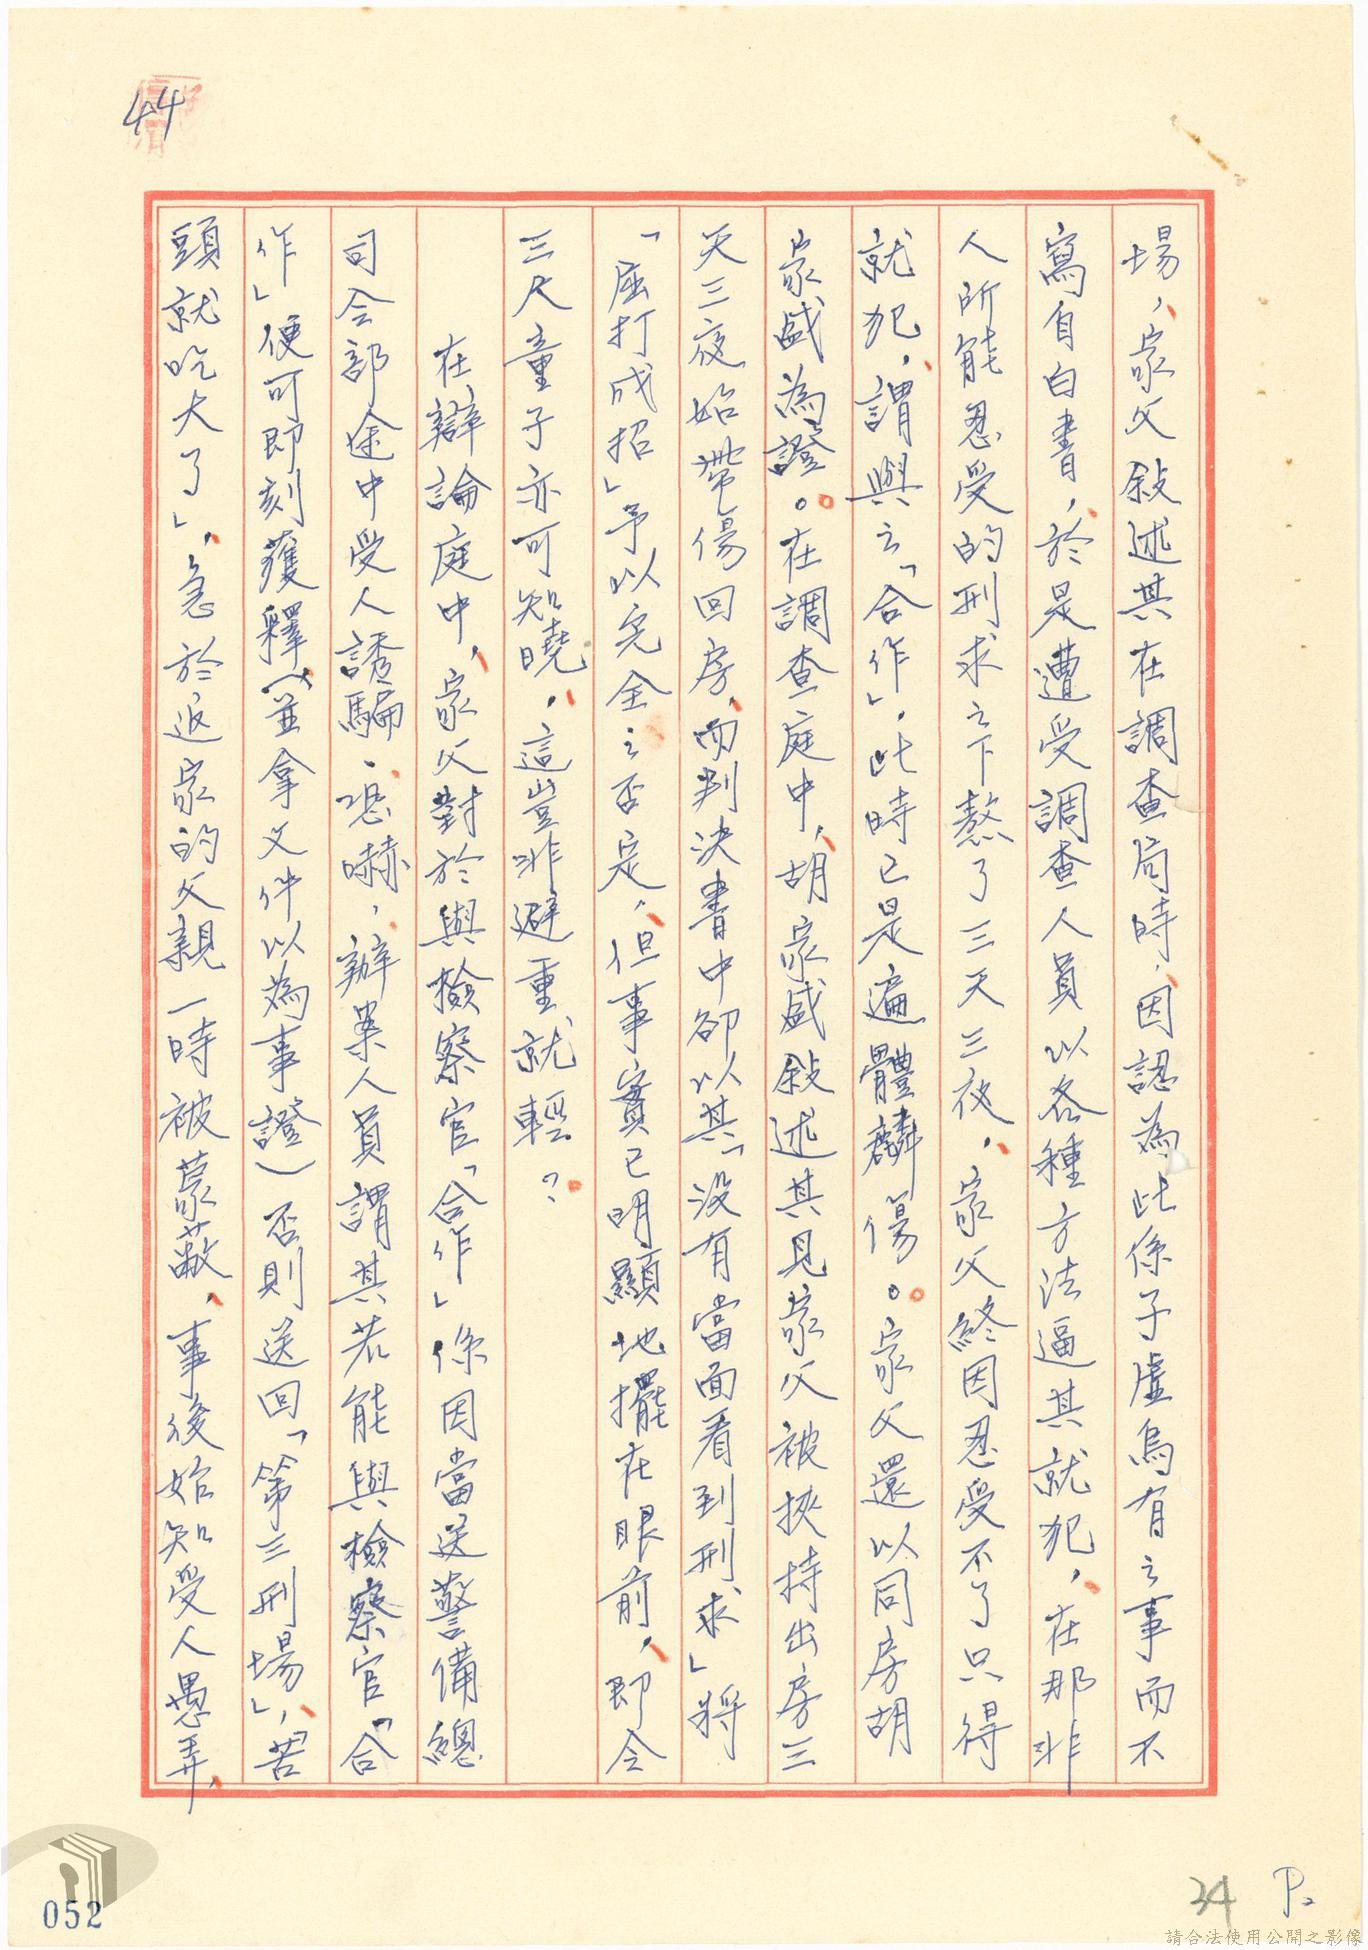 44
場，家父敍述其在調查局時，因認為此係子虛烏有之事而不
寫自白書，於是遭受調查人員以各種方法逼其就犯，在那非
人所能忍受的刑求之下熬了三天三夜，家父終因忍受不了只得
就犯，謂與之「合作」，此時已是遍體麟傷。家父還以同房胡
家盛為證。在調查庭中，胡家盛敍述其見家父被挾持出房三
天三夜始帶傷回房，而判決書中卻以其「沒有當面看到刑求」將
「屈打成招」予以完全之否定，但事實已明顯地擺在眼前，即令
三尺童子亦可知曉，這豈非避重就輕？
在辯論庭中，家父對於與檢察官「合作」係因當送警備總
司令部途中受人誘騙、恐嚇，辦案人員謂其若能與檢察官「合
作」便可即刻獲釋（並拿文件以為事證）否則送回「第三刑場」，「苦
頭就吃大了」，急於返家的父親一時被蒙蔽，事後始知受人愚弄，
052
34
P2
請合法使用公開之影像